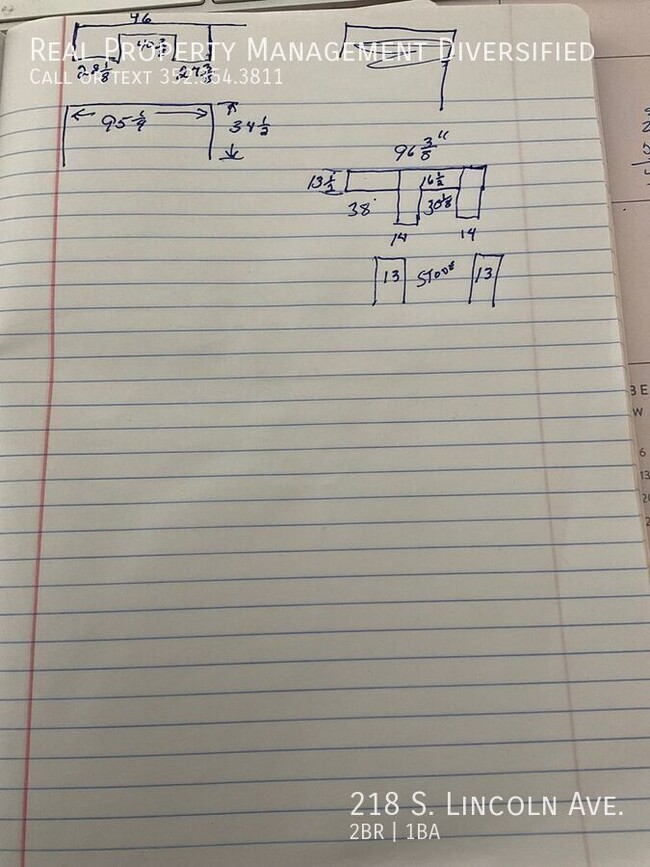 Real Property Management Diversified
Call or text 352.354.3811
28 1/8
27 3/8
95 1/4
34 1/2
96 3/8"
13 1/2
16 1/2
38
30 1/8
14
14
13
13
218 S. Lincoln Ave.
2BR | 1BA